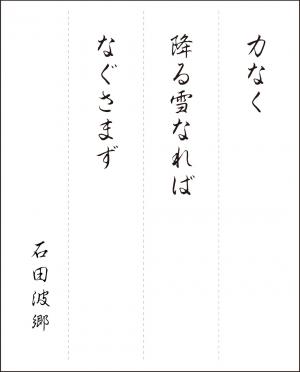 力なく
降る雪なれば
なぐさまず
石田波郷